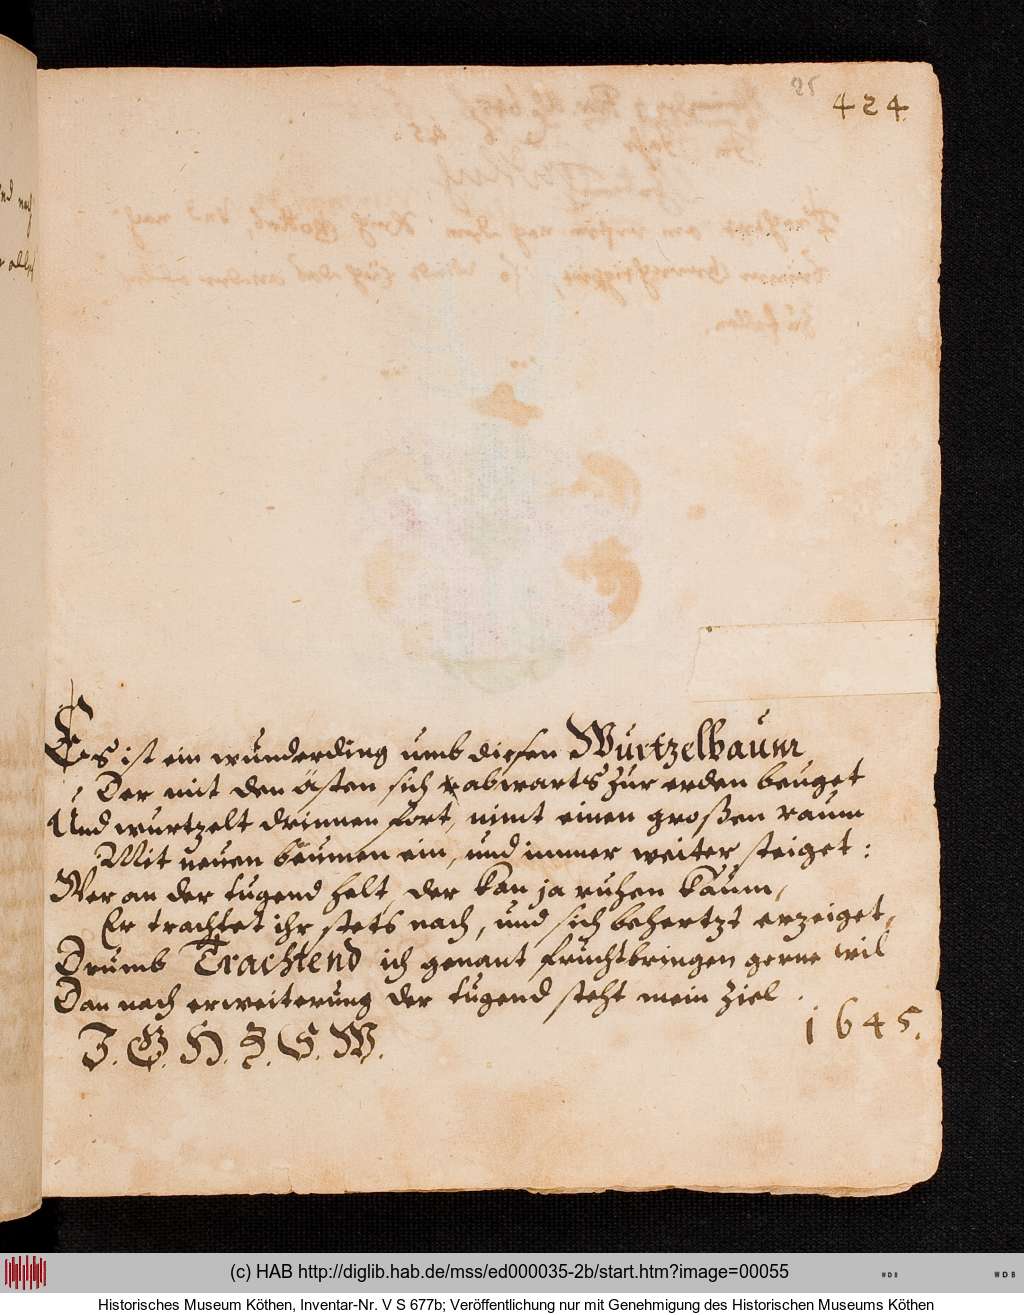 25
424
Es ist ein wunderding umb diesen Wurtzelbaum
Der mit den ästen sich abwarts zur erden beuget
Und wurtzelt drinnen fort, nimt einen großen raum
Mit neuen beumen ein, und immer weiter steiget:
Wer an der tugend helt, der kan ja ruhen kaum,
Er trachtet ihr stets nach, und sich behertzt erzeiget,
Drumb Trachtend ich genant fruchtbringen gerne wil
Dan nach erweiterung der tugend steht mein ziel.
J. G. H. Z. S. W.
1645.
(c) HAB http://diglib.hab.de/mss/ed000035-2b/start.htm?image=00055
WDB
WDB
Historisches Museum Köthen, Inventar-Nr. V S 677b; Veröffentlichung nur mit Genehmigung des Historischen Museums Köthen